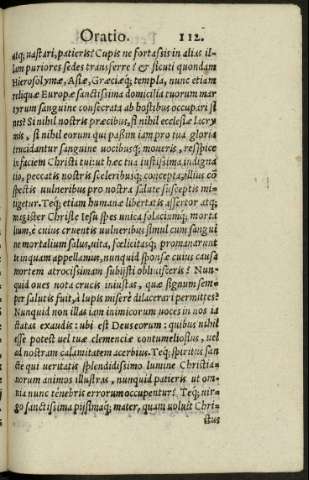 Oratio. 112.
atq; uastari, patieris? Cupis ne fortassis in alias il-
lam puriores sedes transferre? & sicuti quondam
Hierosolymæ, Asiæ, Græciæq; templa, nunc etiam
reliquæ Europæ sanctissima domicilia tuorum mar
tyrum sanguine consecrata ab hostibus occupari si
nis? Si nihil nostris præcibus, si nihil ecclesiæ lacry
mis, si nihil eorum qui passim iam pro tua gloria
trucidantur sanguine uocibusq; moueris, respice
in faciem Christi tui ut hæc tua iustissima indigna
tio, peccatis nostris sceleribusq; concepta, illius cō
spectis uulneribus pro nostra salute susceptis mi-
tigetur. Teq; etiam humanæ libertatis assertor atq;
magister Christe Iesu spes unica solaciumq; morta
lium, è cuius cruentis uulneribus simul cum sangui
ne mortalium salus, uita, fœlicitasq; promanarunt
te inquam appellamus, nunquid sponsæ cuius causa
mortem atrocissimam subijsti obliuisceris? Nun-
quid oues nota crucis iniustas, quæ signum sem-
per salutis fuit, à lupis miserè dilacerari permittes?
Nunquid non illas iam inimicorum uoces in nos ia
ctatas exaudis: ubi est Deus eorum: quibus nihil
esse potest uel tuæ clemenciæ contumeliosius, uel
ad nostram calamitatem acerbius. Teq; spiritus san
cte qui ueritatis splendidissimo lumine Christia-
norum animos illustras, nunquid patieris ut om-
nia nunc tenebris errorum occupentur? Teq; uir-
go sanctissima pijssimaq; mater, quam uoluit Chri-
stus